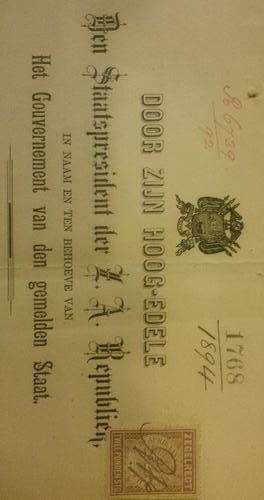 1768
1894
R 6739
92
DOOR ZIJN HOOG-EDELE
Den Staatspresident der Z. A. Republiek,
IN NAAM EN TEN BEHOEVE VAN
Het Gouvernement van den gemelden Staat.
ZEGELREGT